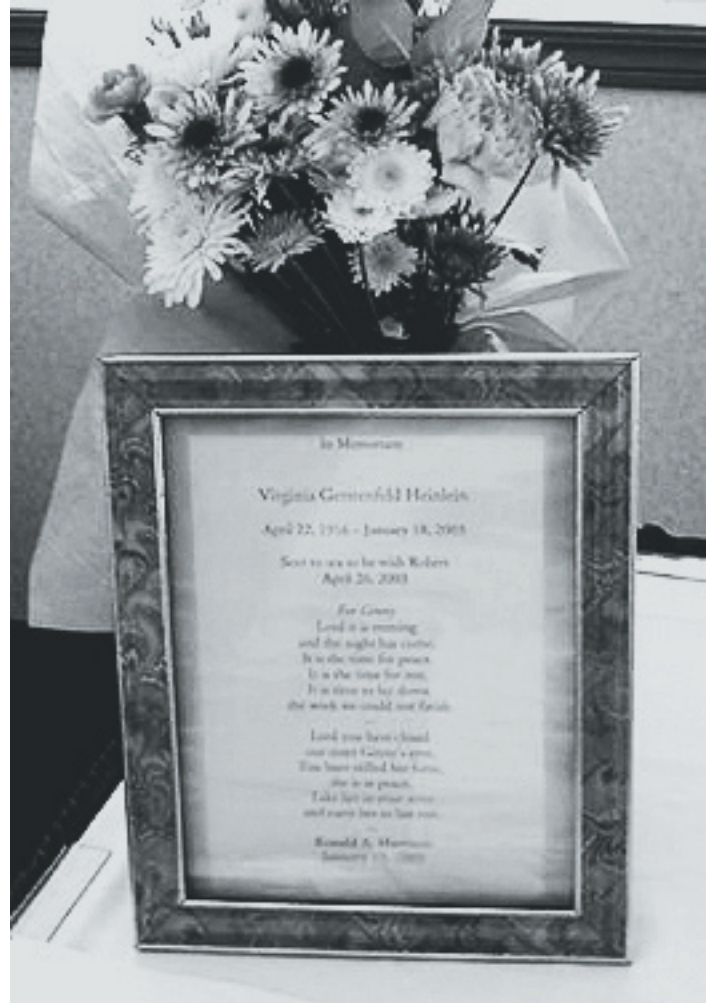 In Memoriam
Virginia Gerstenfeld Heinlein
April 22, 1916 – January 18, 2003
Sent to sea to be with Robert
April 26, 2003
For Ginny
Lord it is evening
and the night has come.
It is the time for peace.
It is the time for rest.
It is time to lay down
the work we could not finish.
Lord you have closed
our sister Ginny's eyes.
You have stilled her form,
she is at peace.
Take her in your arms
and carry her to her rest.
Ronald A. Harrison
January 2003